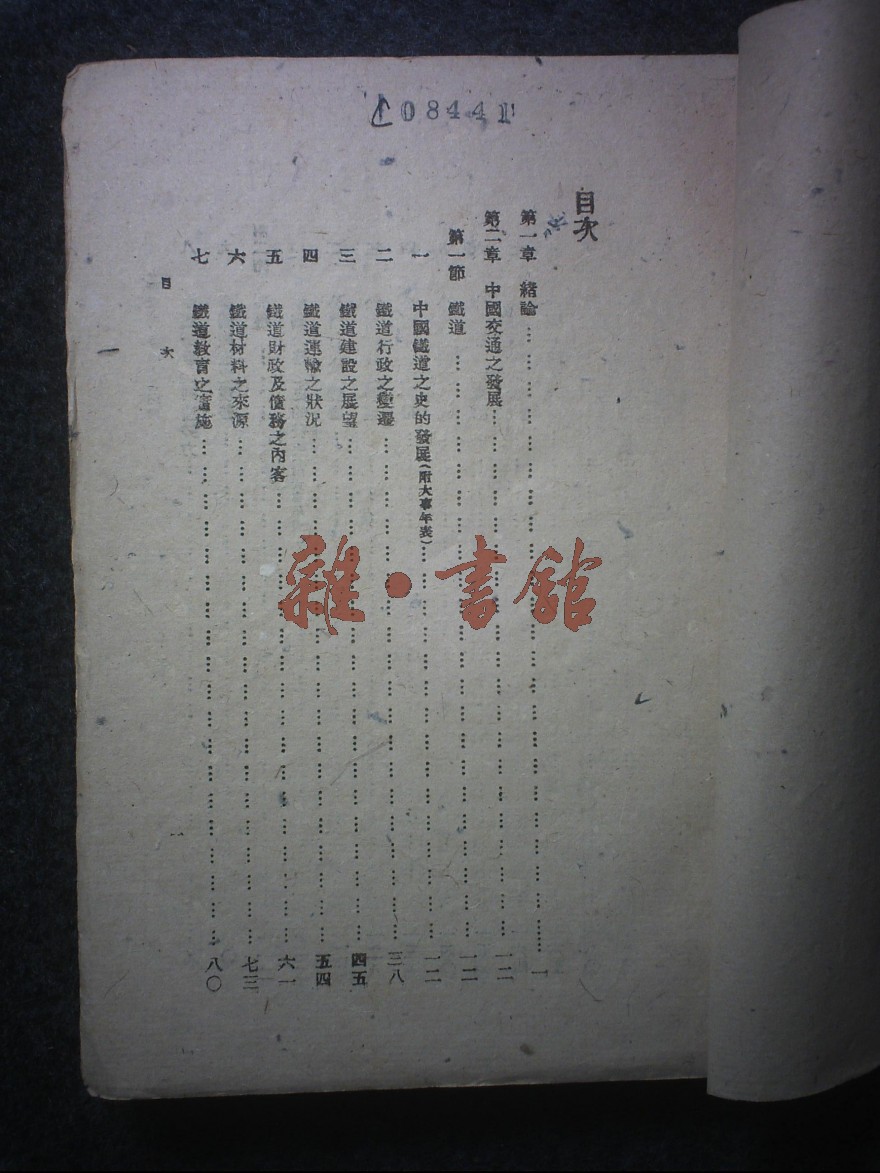 108441
目次
第一章 緒論……一
第二章 中國交通之發展……一二
第一節 鐵道……一二
一 中國鐵道之史的發展(附大事年表)……一二
二 鐵道行政之變遷……三八
三 鐵道建設之展望……四五
四 鐵道運輸之狀況……五四
五 鐵道財政及債務之內容……六一
六 鐵道材料之來源……七三
七 鐵道教育之實施……八〇
目次 一
雜·書館